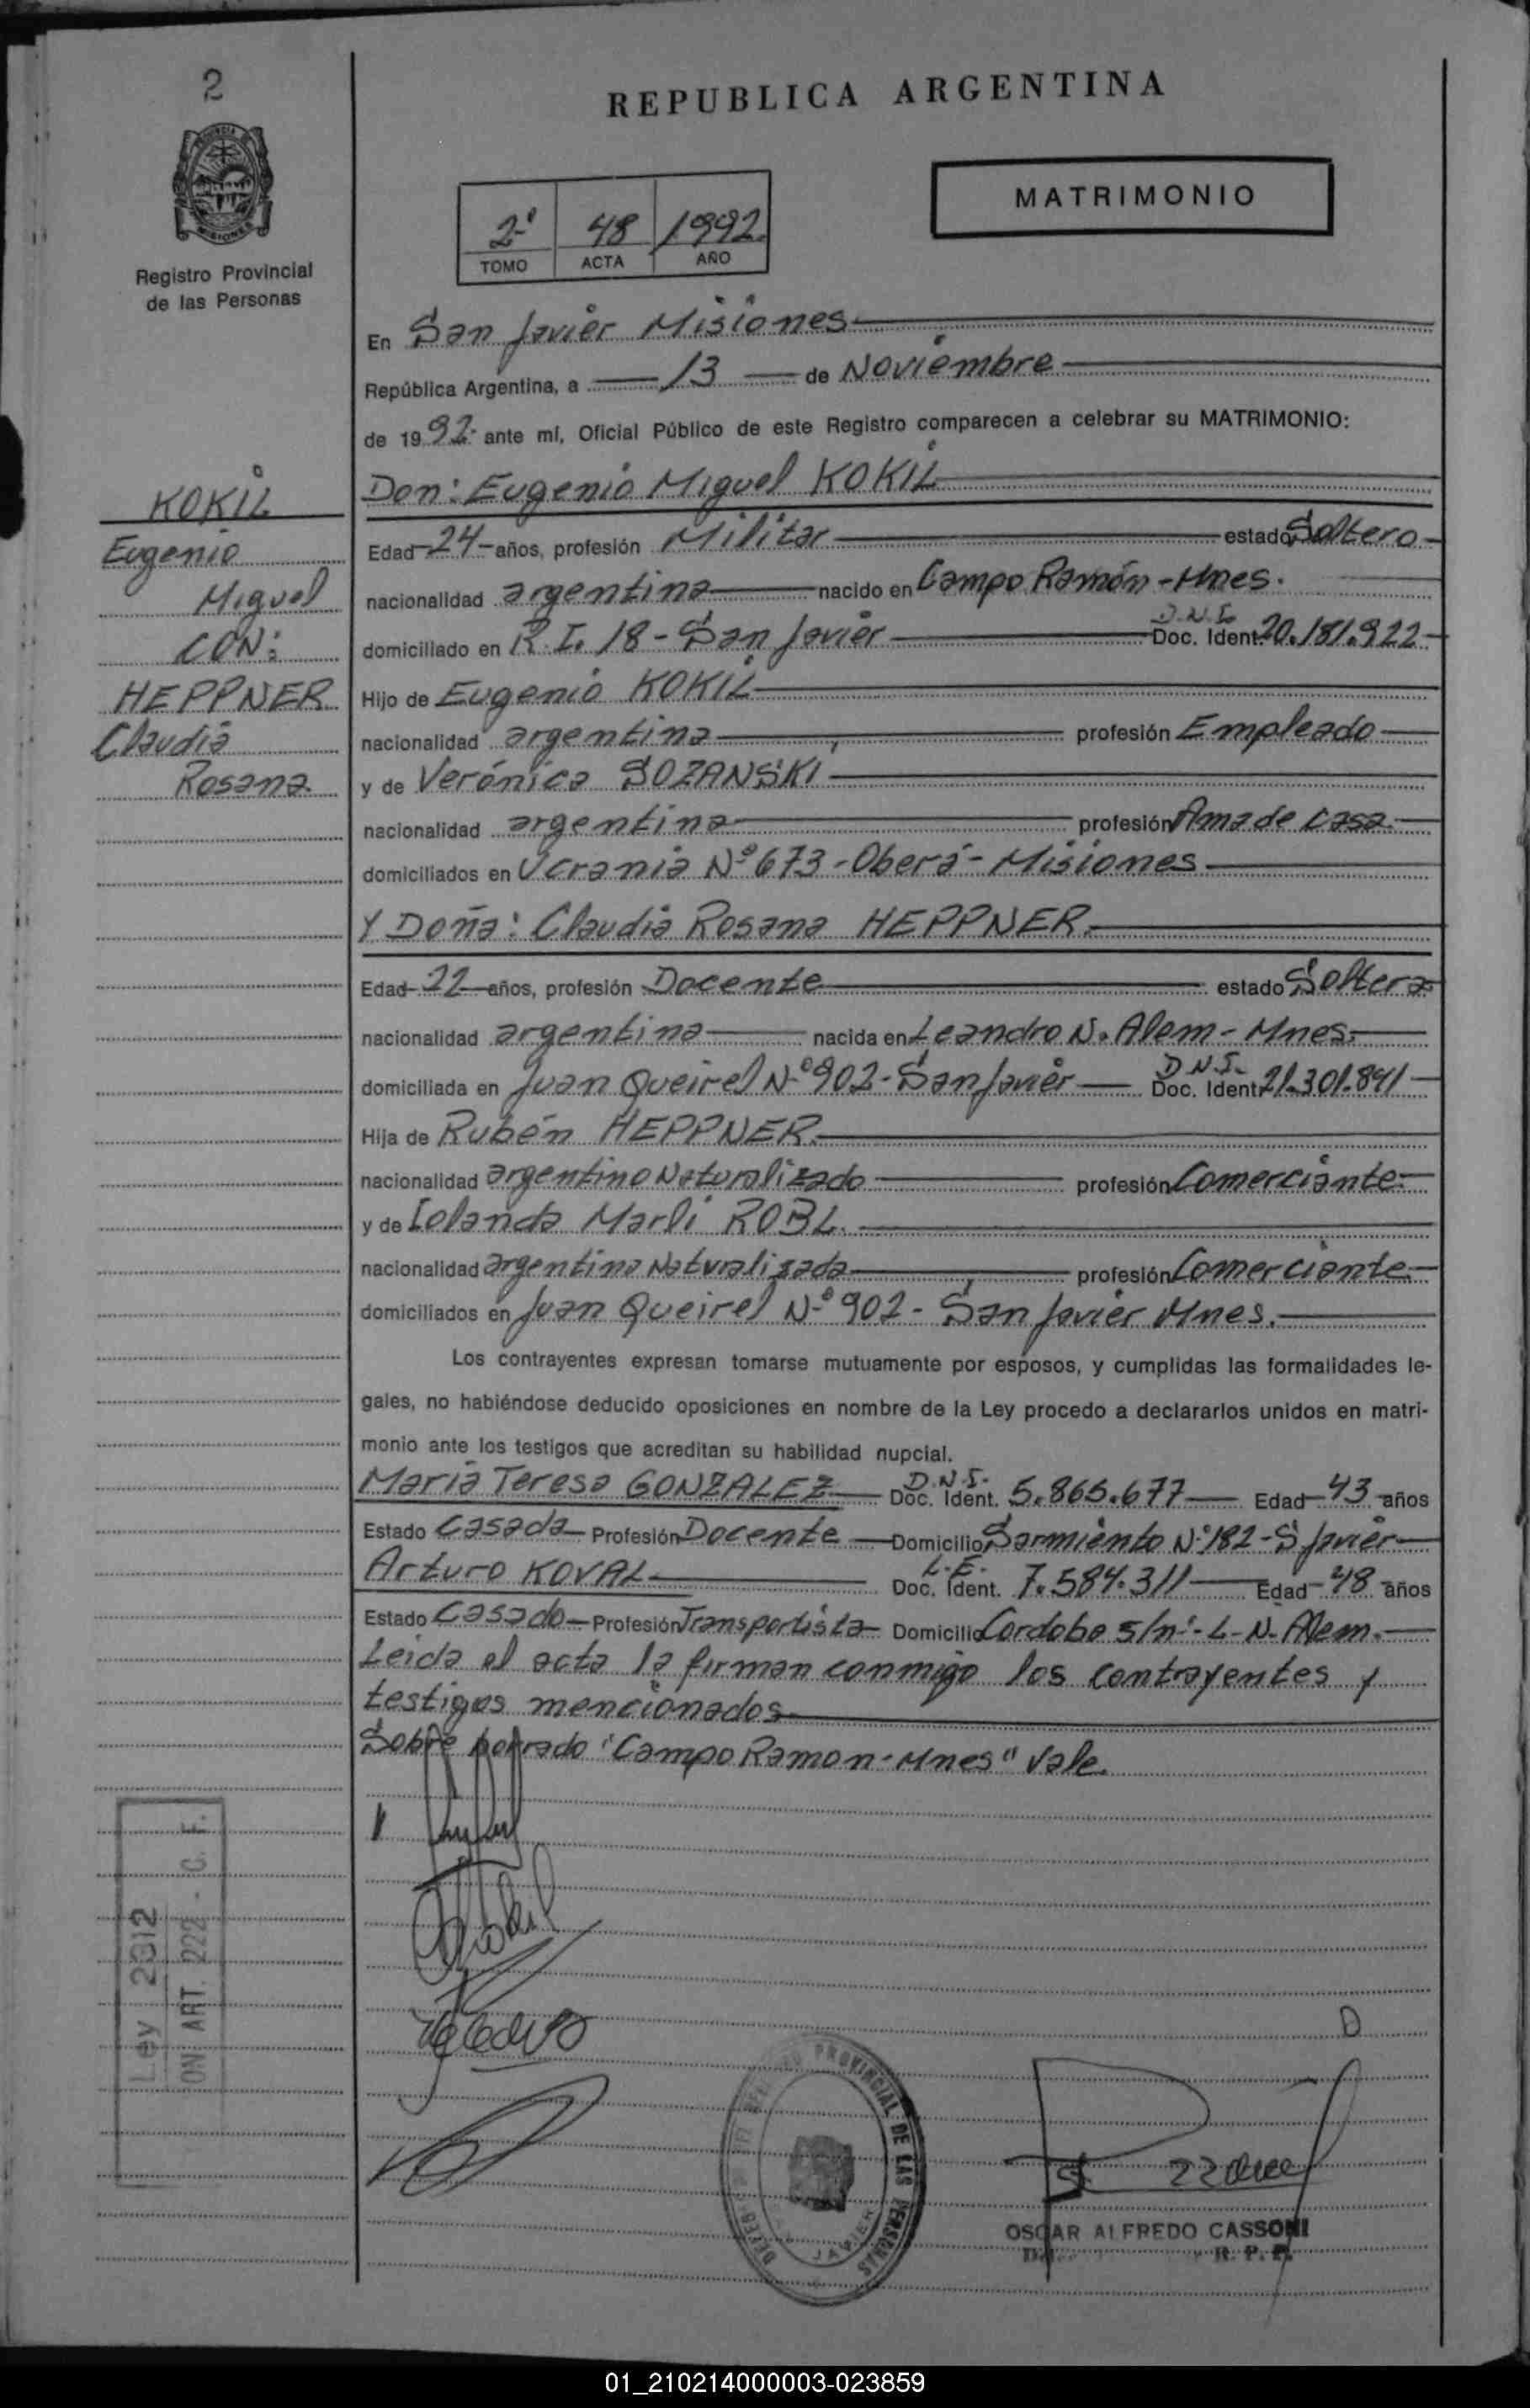 2
REPUBLICA ARGENTINA
MATRIMONIO
2º 48 1992
TOMO ACTA AÑO
Registro Provincial
de las Personas
KOKIL
Eugenio
Miguel
CON:
HEPPNER
Claudia
Rosana.
En San Javier Misiones
República Argentina, a 13 de Noviembre
de 1992 ante mí, Oficial Público de este Registro comparecen a celebrar su MATRIMONIO:
Don: Eugenio Miguel KOKIL
Edad 24 años, profesión Militar estado Soltero
nacionalidad argentina nacido en Campo Ramón - Mnes.
domiciliado en R.I. 18 - San Javier D.N.I. Doc. Ident. 20.181.922
Hijo de Eugenio KOKIL
nacionalidad argentina profesión Empleado
y de Verónica SOZANSKI
nacionalidad argentina profesión Ama de casa.
domiciliados en Ucrania Nº 673 - Oberá - Misiones
Y Doña: Claudia Rosana HEPPNER.
Edad 22 años, profesión Docente estado Soltera
nacionalidad argentina nacida en Leandro N. Alem - Mnes.
domiciliada en Juan Queirel Nº 902 - San Javier D.N.I. Doc. Ident. 21.301.841
Hija de Rubén HEPPNER.
nacionalidad argentino Naturalizado profesión Comerciante.
y de Iolanda Marli ROBL.
nacionalidad argentina Naturalizada profesión Comerciante
domiciliados en Juan Queirel Nº 902 - San Javier Mnes.
Los contrayentes expresan tomarse mutuamente por esposos, y cumplidas las formalidades le-
gales, no habiéndose deducido oposiciones en nombre de la Ley procedo a declararlos unidos en matri-
monio ante los testigos que acreditan su habilidad nupcial.
María Teresa GONZALEZ D.N.I. Doc. Ident. 5.865.677 Edad 43 años
Estado Casada Profesión Docente Domicilio Sarmiento Nº 182 - S Javier
Arturo KOVAL L.E. Doc. Ident. 7.584.311 Edad 48 años
Estado Casado Profesión Transportista Domicilio Cordoba s/nº - L. N. Alem.
Leida el acta la firman conmigo los contrayentes y
testigos mencionados
Sobre borrado "Campo Ramon - Mnes" Vale.
Ley 2312
ON ART. 222 - C. F.
PROVINCIAL DE LAS PERSONAS
JAVIER
OSCAR ALFREDO CASSONI
R. P. P.
01_210214000003-023859